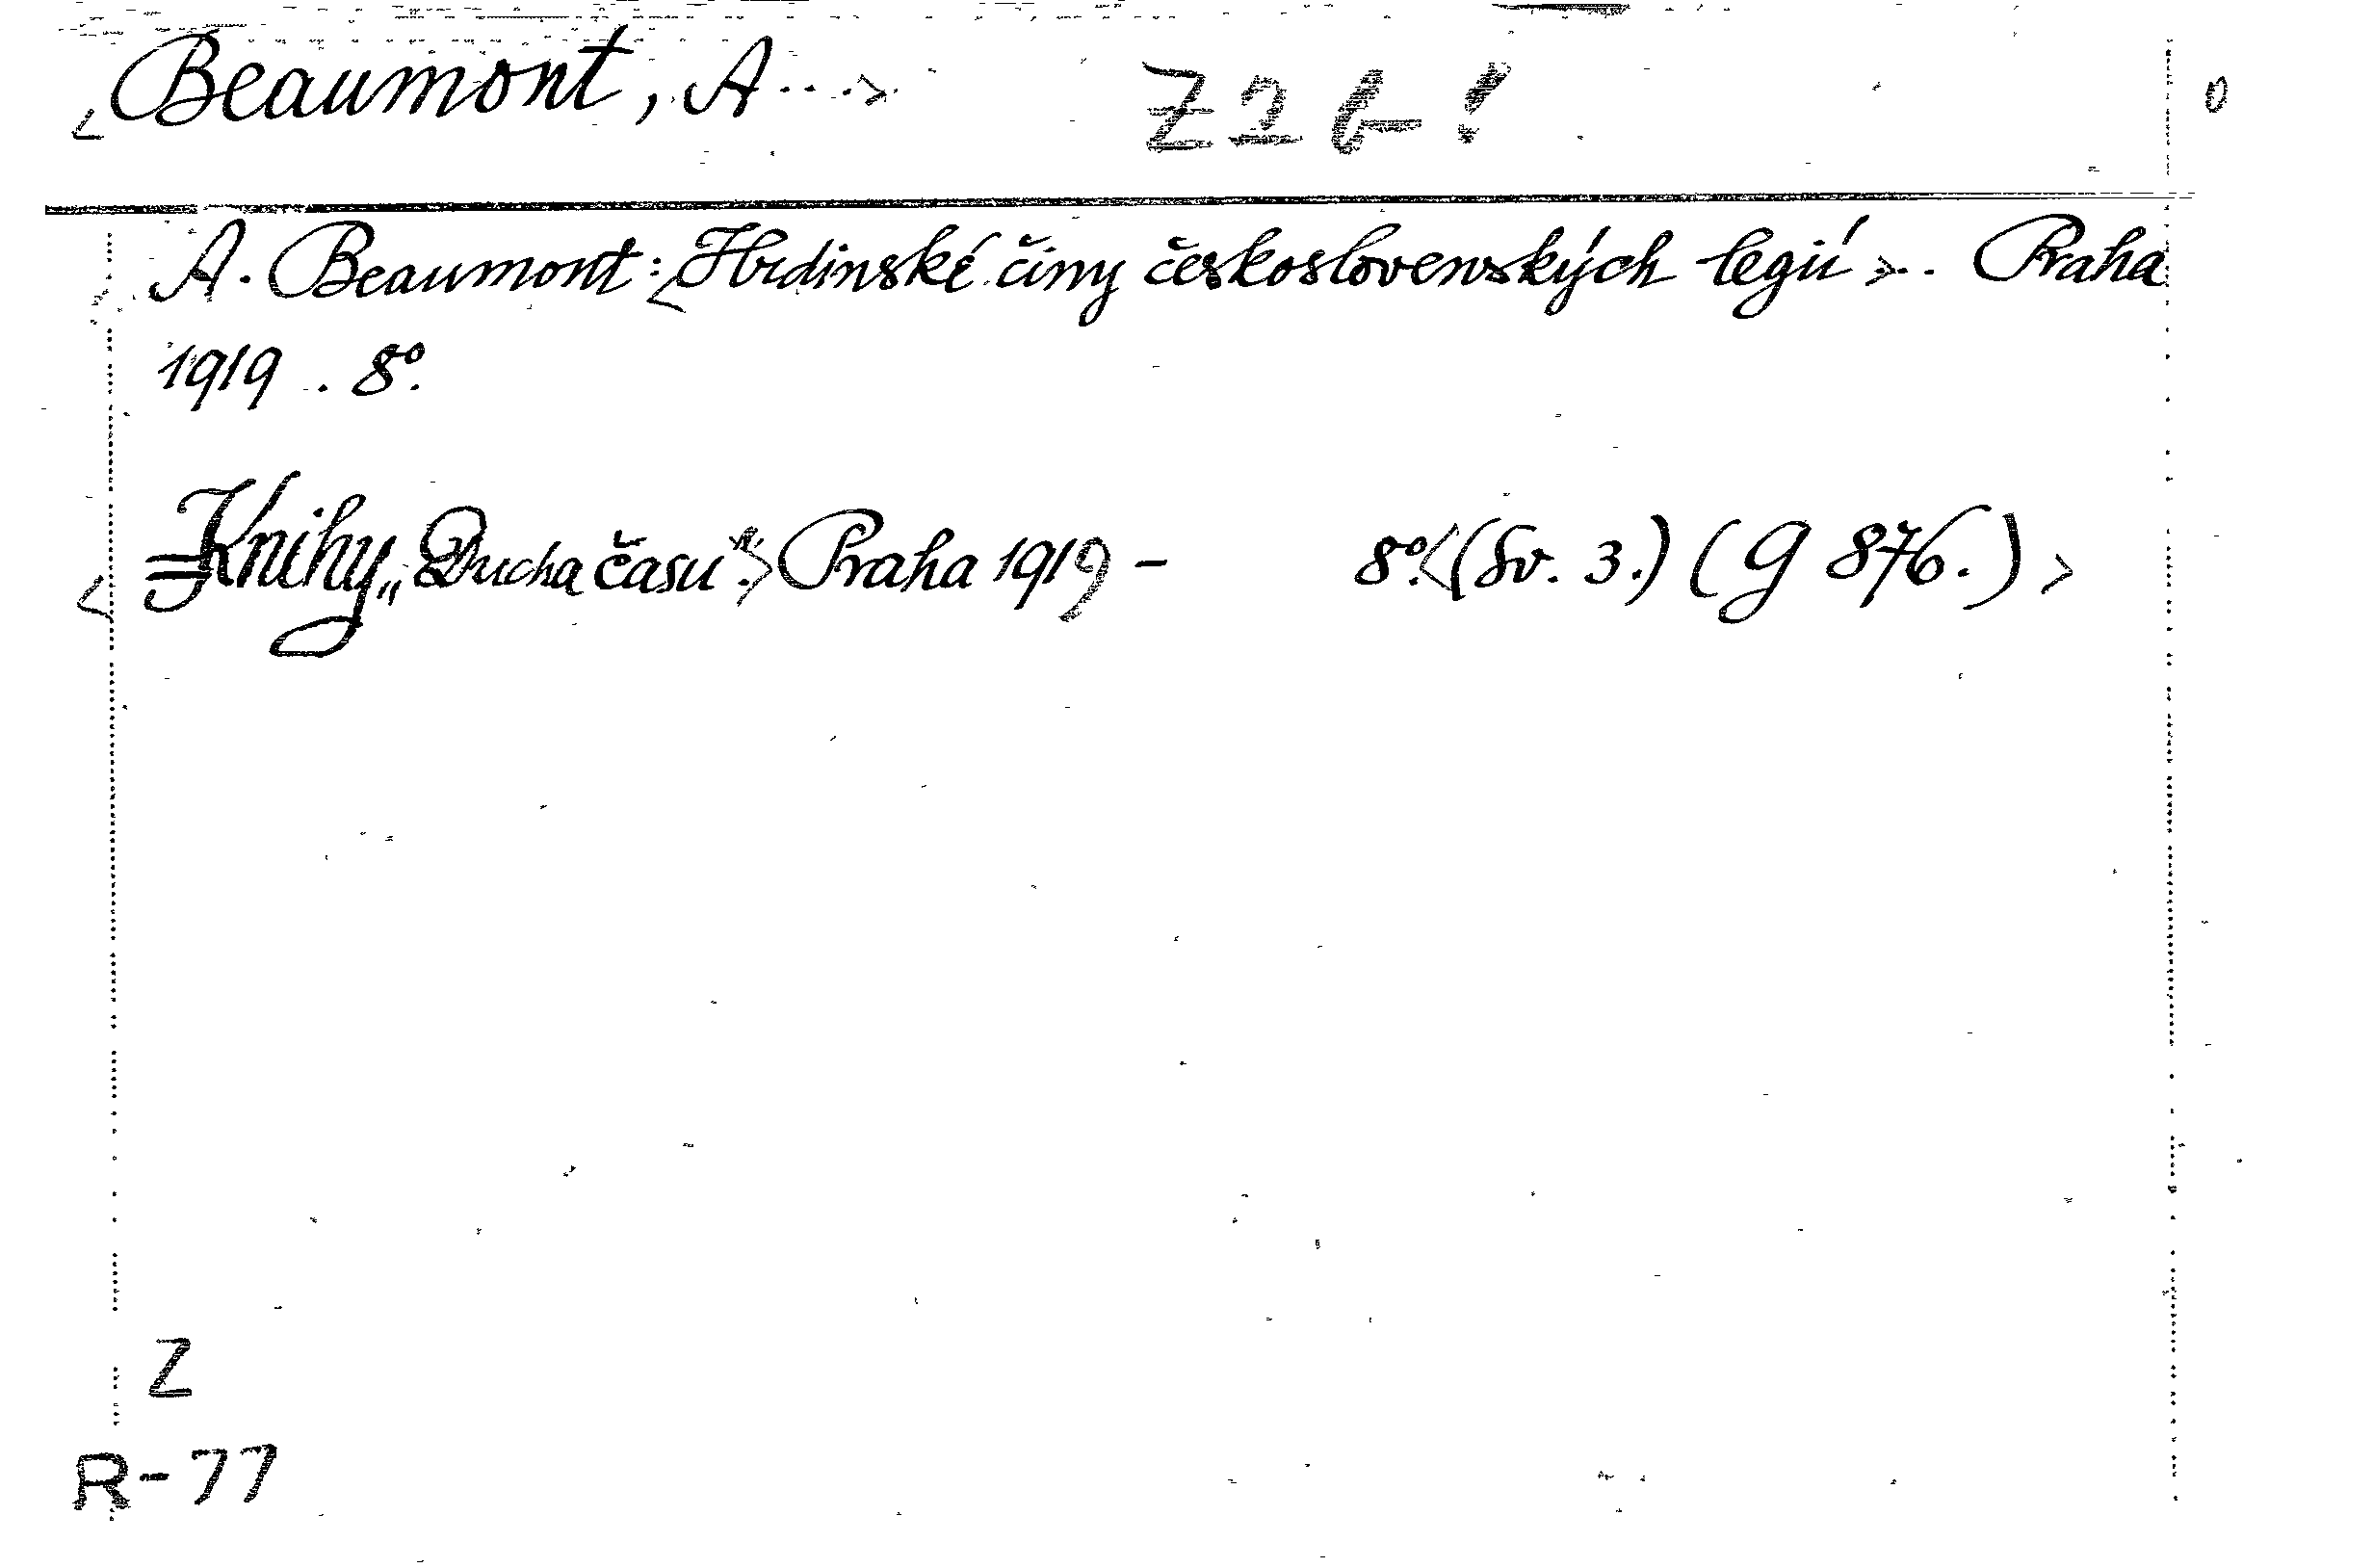 <Beaumont, A....>
0
A. Beaumont: <Hrdinské činy československých legií>. Praha
1919. 8°.
<=Knihy „Ducha času“.> Praha 1919 – 8°. <(Sv. 3.) (G 876.)>
Z
R-77